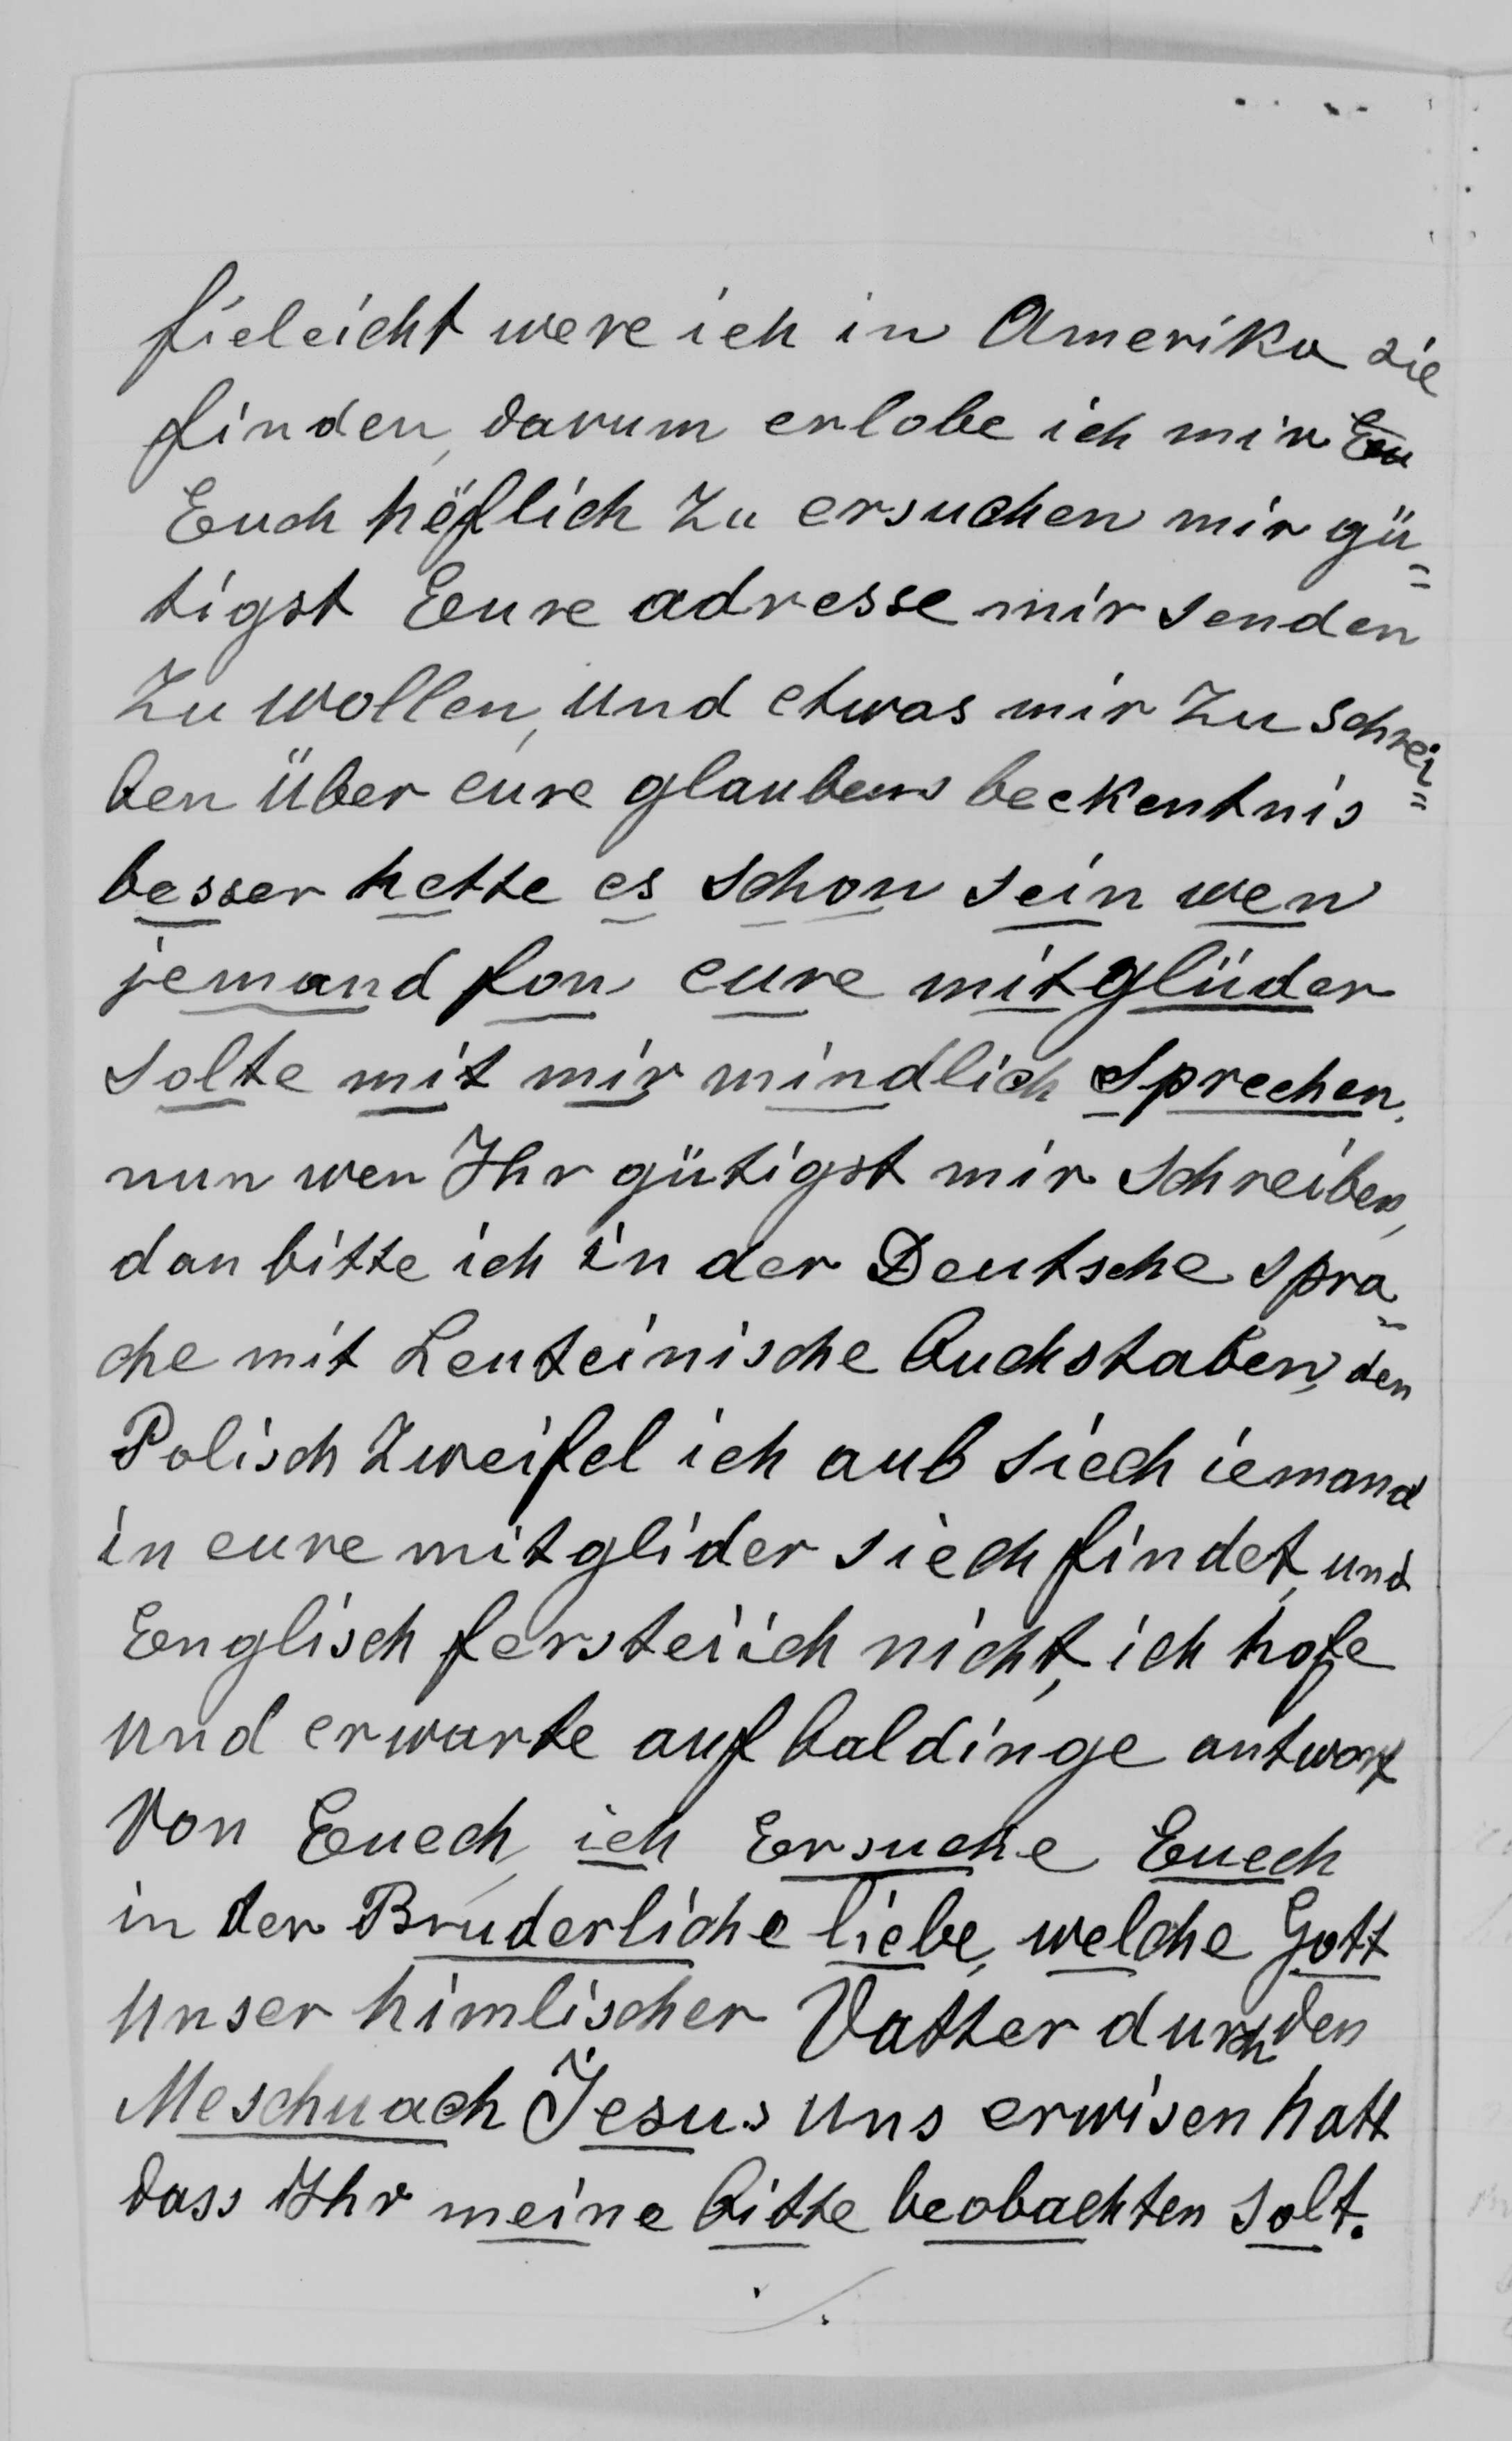 fieleicht were ich in Amerika sie
finden, darum erlobe ich mir Eu
Euch höflich zu ersuchen mir gü=
tigst Eure adresse mir senden
Zu wollen, und etwas mir zu schrei=
ben über eure glaubens beckentnis
besser hette es schon sein wen
jemand fon eure mitglüder
solte mit mir mindlich sprechen.
nun wen Ihr gütigst mir schreiben,
dan bitte ich in der Deutsche spra=
che mit Leuteinische buchstaben, den
Polisch zweifel ich aub siech iemand
in eure mitglider siech findet, und
Englisch fersteiich nicht, ich hofe
und erwarte auf baldinge antwort
von Euech, ich Ersuche Euech
in der Bruderliche liebe, welche Gott
unser himlischer Vatter durch den
Meschuach Jesus uns erwisen hatt
dass Ihr meine bitte beobachten solt.
./.